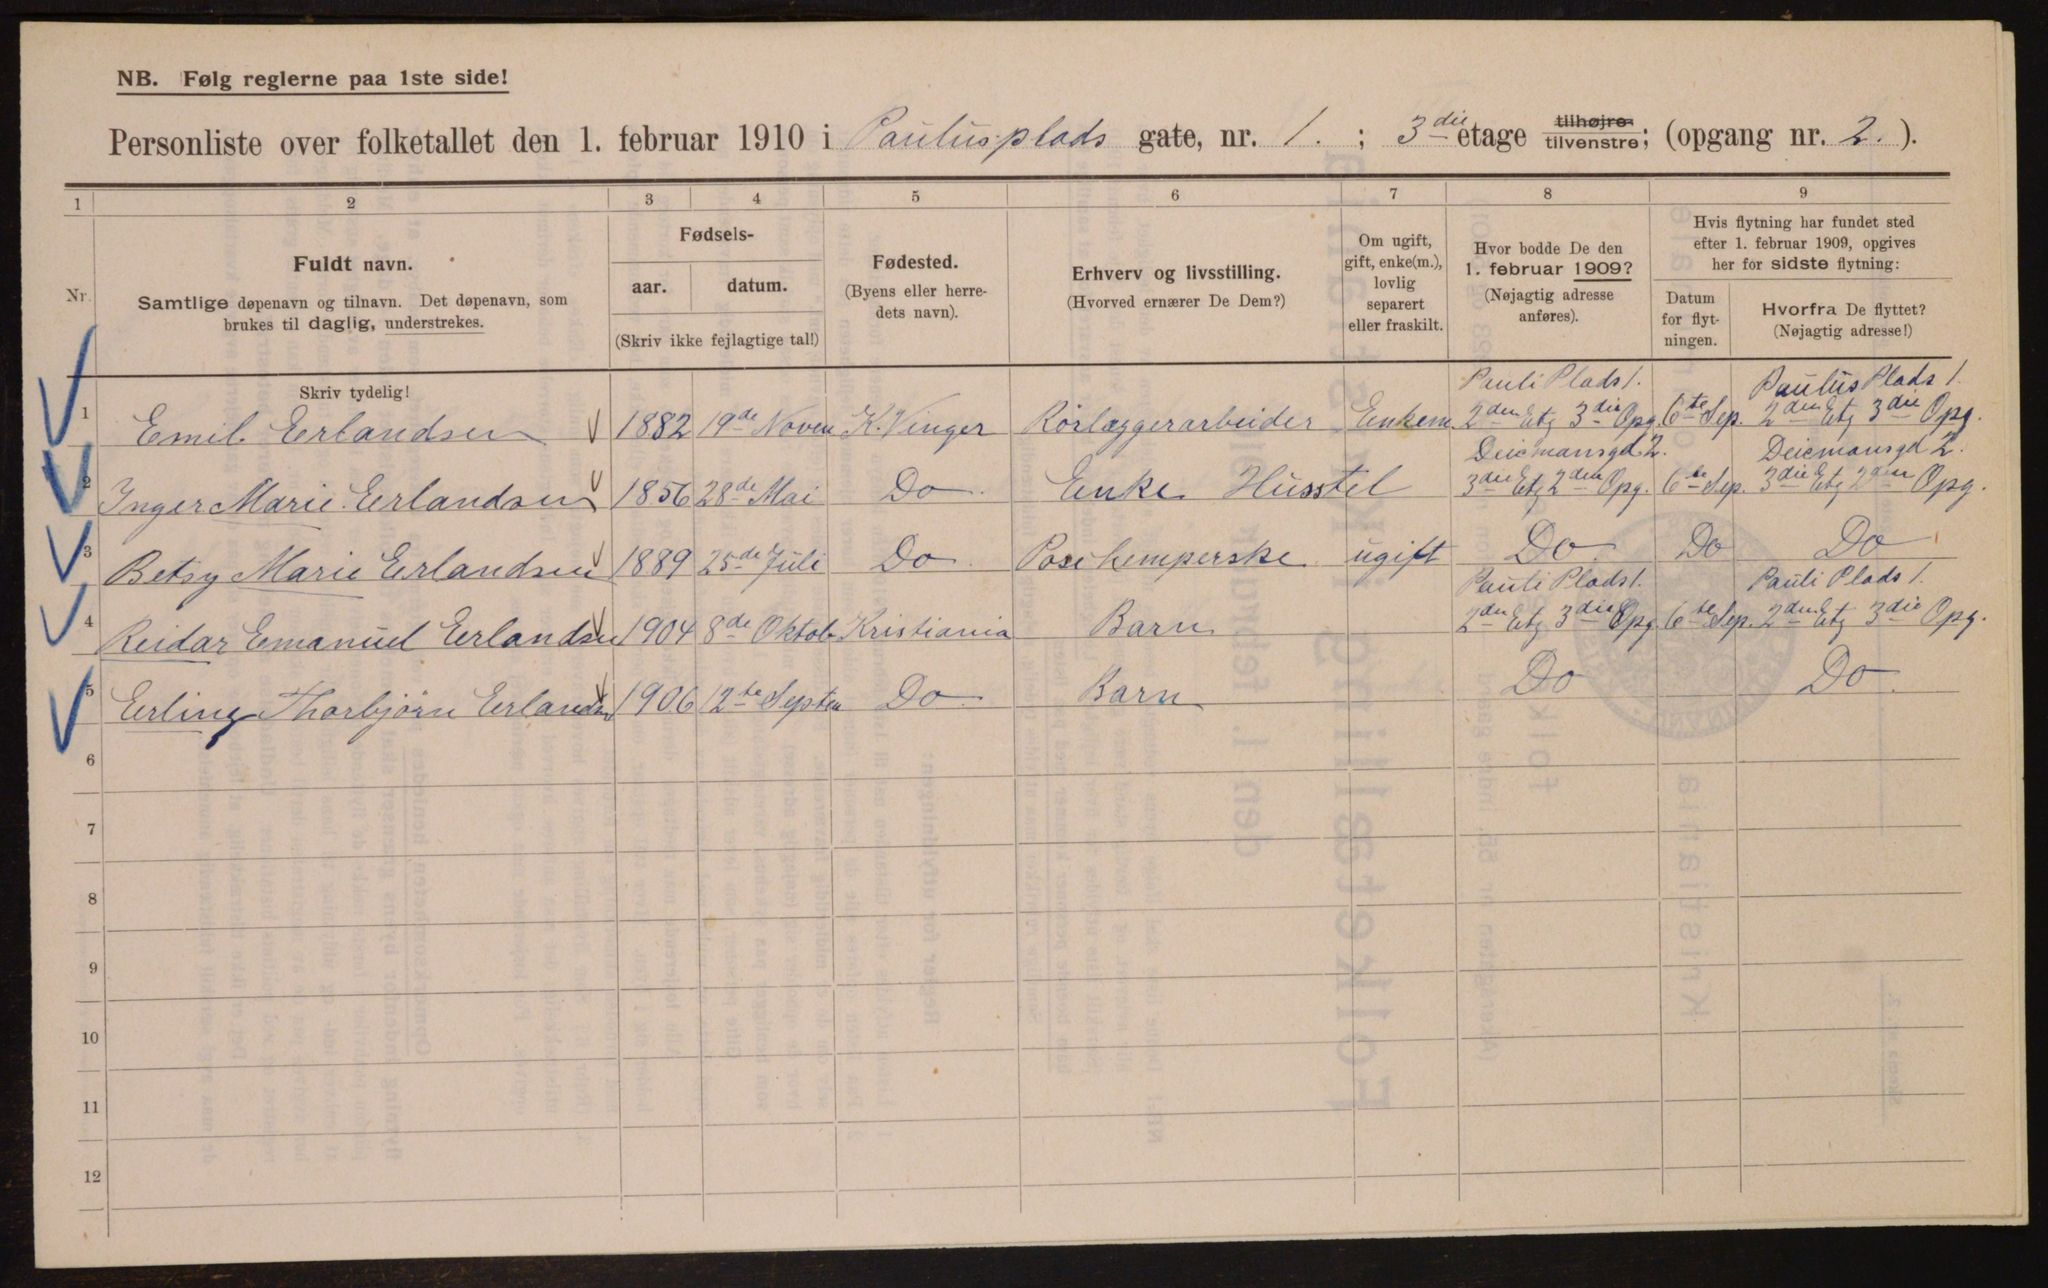 NB. Følg reglerne paa 1ste side!
Personliste over folketallet den 1. februar 1910 i Paulusplads gate, nr. 1. ; 3die etage tilhøjre tilvenstre; (opgang nr. 2.).
1 2 3 4 5 6 7 8 9
Nr.
Fuldt navn.
Samtlige døpenavn og tilnavn. Det døpenavn, som
brukes til daglig, understrekes.
Skriv tydelig!
Fødsels-
aar. datum.
(Skriv ikke fejlagtige tal!)
Fødested.
(Byens eller herre-
dets navn).
Erhverv og livsstilling.
(Hvorved ernærer De Dem?)
Om ugift,
gift, enke(m.),
lovlig
separert
eller fraskilt.
Hvor bodde De den
1. februar 1909?
(Nøjagtig adresse
anføres).
Hvis flytning har fundet sted
efter 1. februar 1909, opgives
her for sidste flytning:
Datum
for flyt-
ningen.
Hvorfra De flyttet?
(Nøjagtig adresse!)
Pauli Plads 1. Paulus Plads 1.
1 Emil Erlandsen 1882 19de Novem K. Vinger Rörlæggerarbeider Enkem 2den Etg 3die Opg. 6te Sep. 2den Etg 3die Opg.
Deicmansgd 2. Deicmansgd 2.
2 Inger Marie Erlandsen 1856 28de Mai Do Enke Husstel 3die Etg 2den Opg. 6te Sep. 3die Etg 2den Opg.
3 Betsy Marie Erlandsen 1889 25de Juli Do ugift Do Do Do
Pauli Plads 1. Pauli Plads 1.
4 Reidar Emanuel Erlandsen 1904 8de Oktob Kristiania Barn 2den Etg 3die Opg. 6te Sep. 2den Etg 3die Opg.
5 Erling Thorbjörn Erlandsen 1906 12te Septem Do Barn Do Do
6
7
8
9
10
11
12